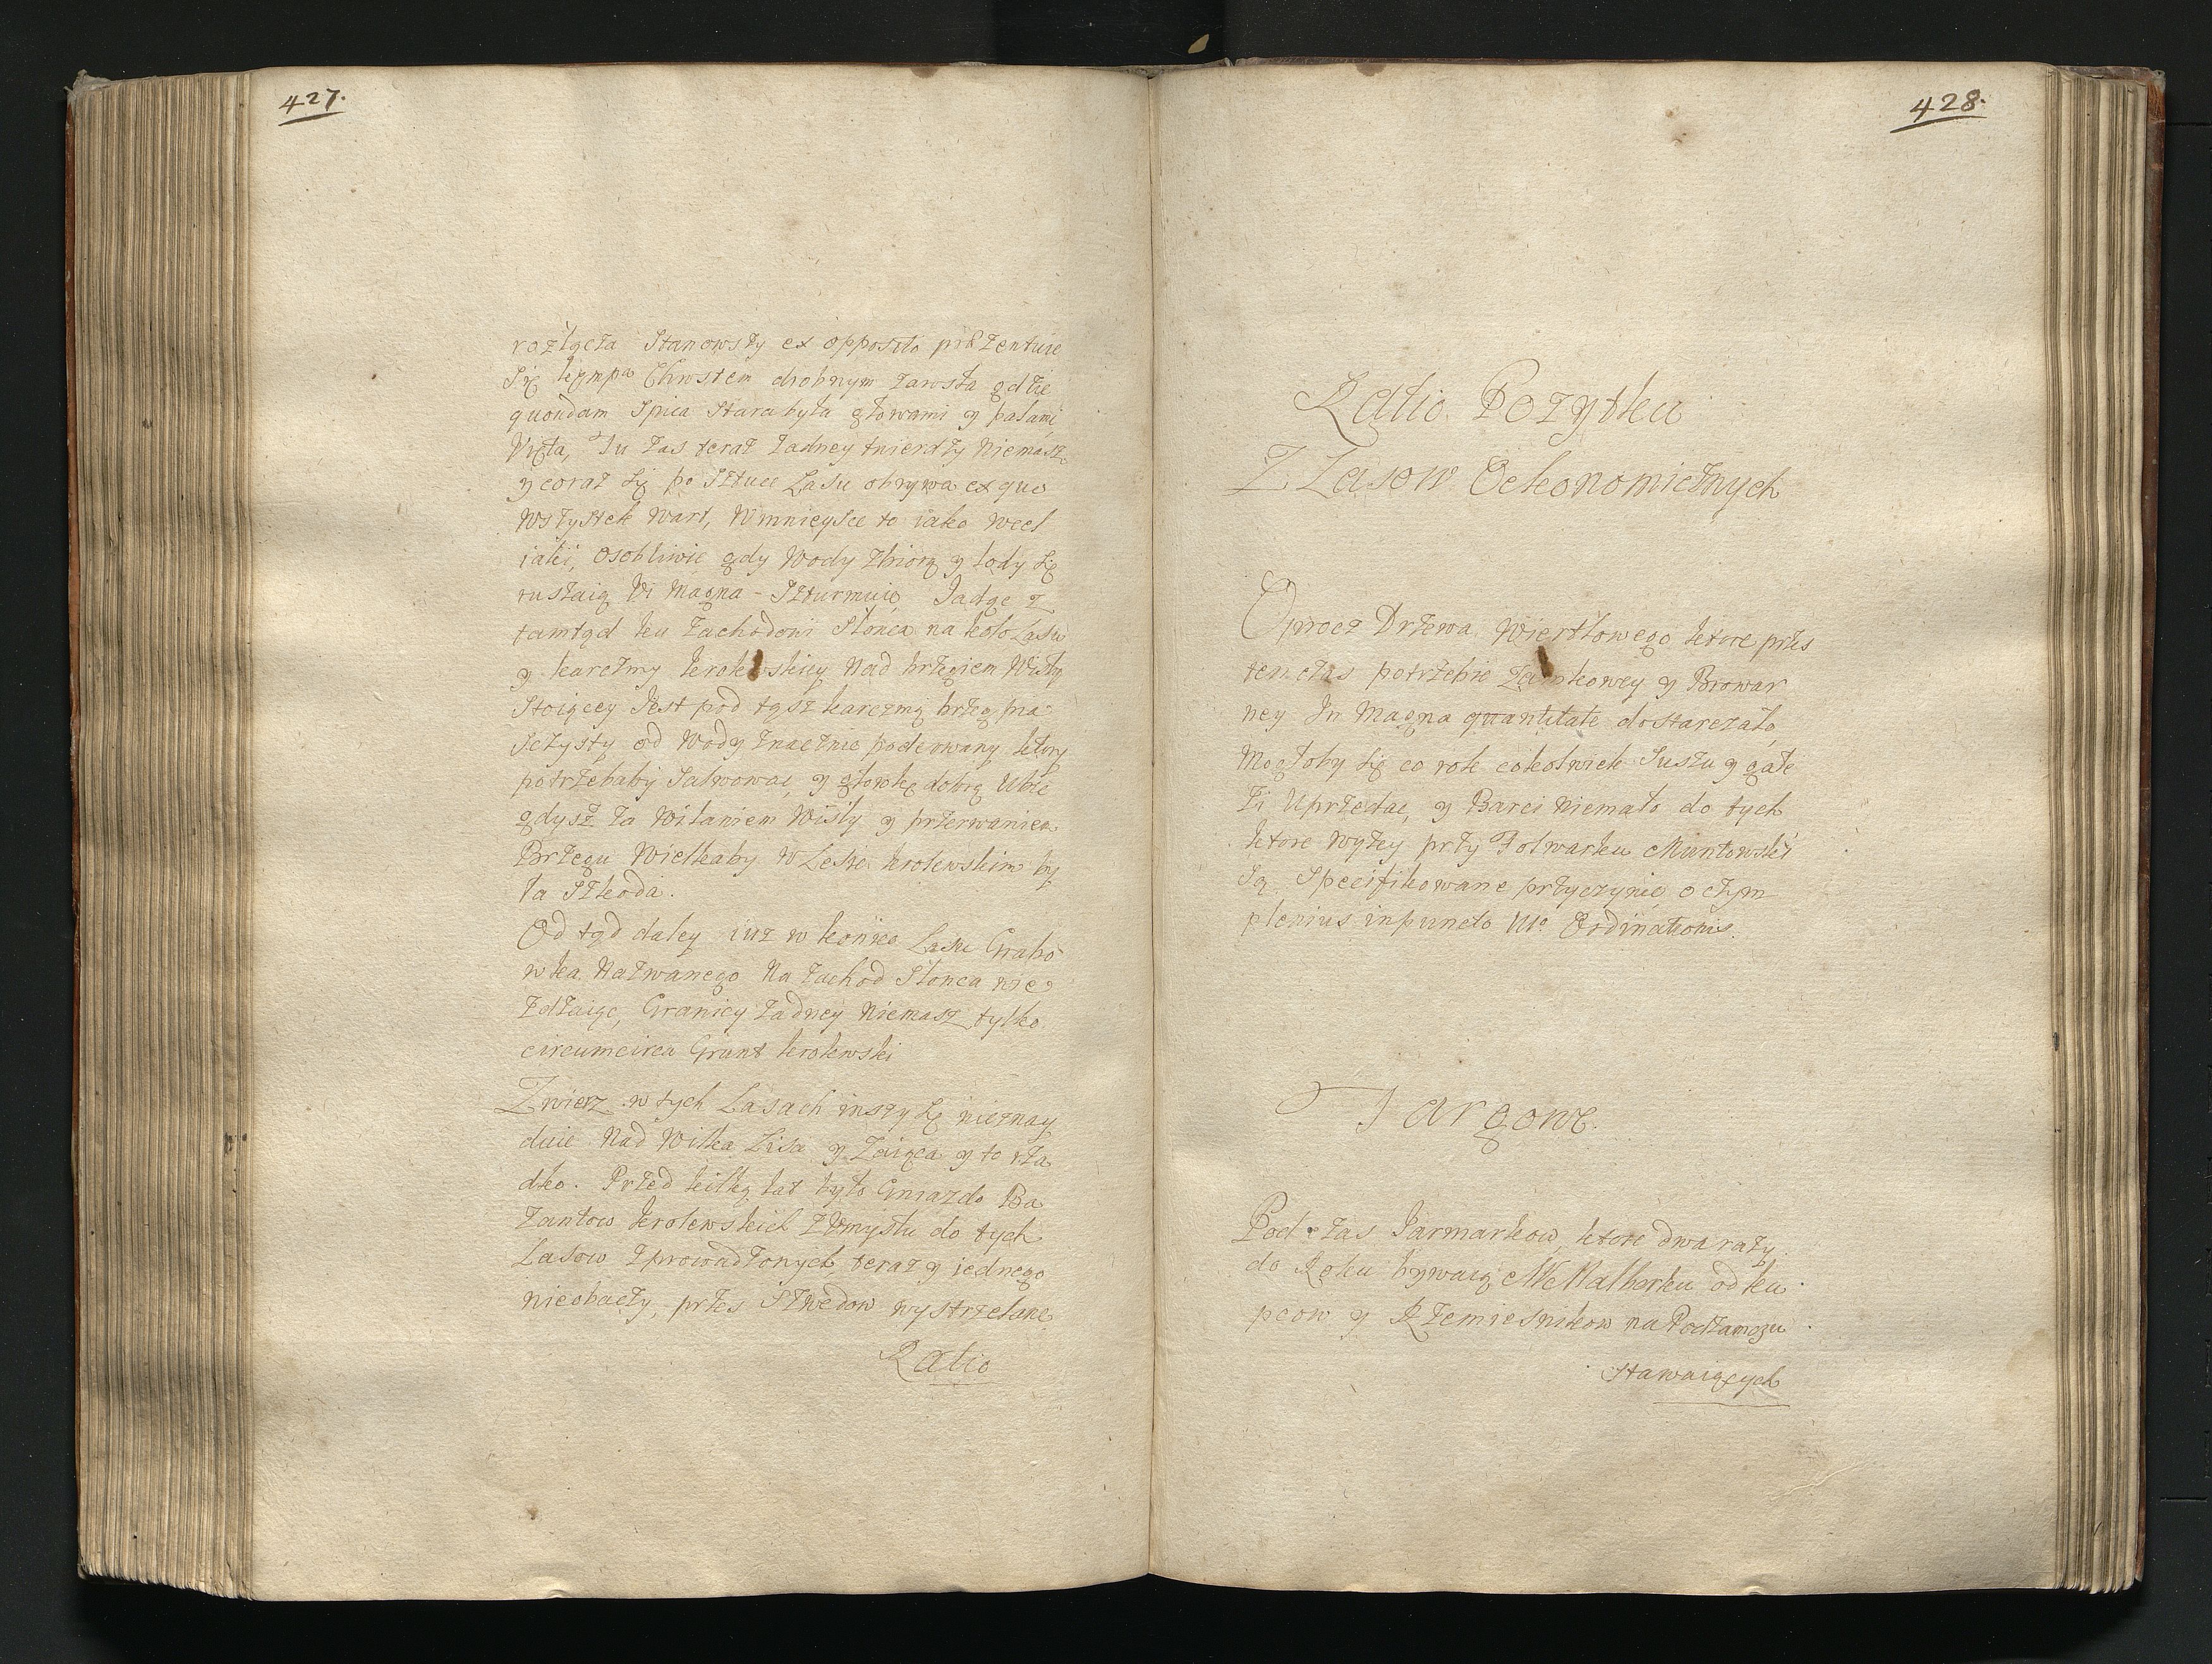 427.
rozłącza stanowszy ex opposito prezentuie
Się kępa Chrostem drobnym zarosła gdzie
quondam Spica Stara była głowami y palami
Vięta, Tu zas teraz żadney twierdzy Niemasz
y coraz Się po Sztuce Lasu obrywa ex quo
Wszystek wart, w mnieysce to iako
iakiś, osobliwie gdy Wody zbiorą y lody Się
ruszaią Vi Magna Szturmuie Jadąc z
tamtąd ku zachodowi Słonca na koło Lasu
y karczmy krolewskiey Nad brzegiem Wisły
Stoiącey Jest pod tąsz karczmą brzeg pia
Sczysty od Wody znacznie podrowany ktory
potrzebaby Salwować, y głowkę dobrą Ubić
gdysz za Wilaniem Wisły y przerwaniem
Brzegu Wielkaby w Lesie krolewskim by
ła Szkoda.
Od tąd daley iuz w końco Lasu Grabo
wka Nazwanego Na zachod Słonca wie
zdzaiąc, Granicy żadney Niemasz tylko
circumcirca Grunt krolewski
Zwierz w tych Lasach inszy Się nieznay
duie Nad Wilka Lisa y Zaiąca y to rza
dko. Przed kilką lat było Gniazdo Ba
zantow krolewskich z Vmysłu do tych
Lasow zprowadzonych teraz y iednego
nieobaczy, przes Szwedow wystrzelane
Ratio
428.
Ratio Pozytku
Z Lasow Oekonomicznych
Oprocz Drzewa Wiertlowego ktore przes
ten czas potrzebie Zamkowey y Browar
ney In Magna quantitate dostarczało,
Mogłoby Się co rok cokolwiek Suszu y gałe
zi Uprzedać, y Barci niemało do tych
ktore wyzey przy Folwarku Muntowski
Są Specifikowane przyczynić o czym
plenius in puncto Mo Ordinationis.
Targowe.
Podczas Jarmarkow ktore dwa razy
do Roku bywaią We Malborku od ku
pcow y Rzemiesnikow na Podzamczu
stawaiących